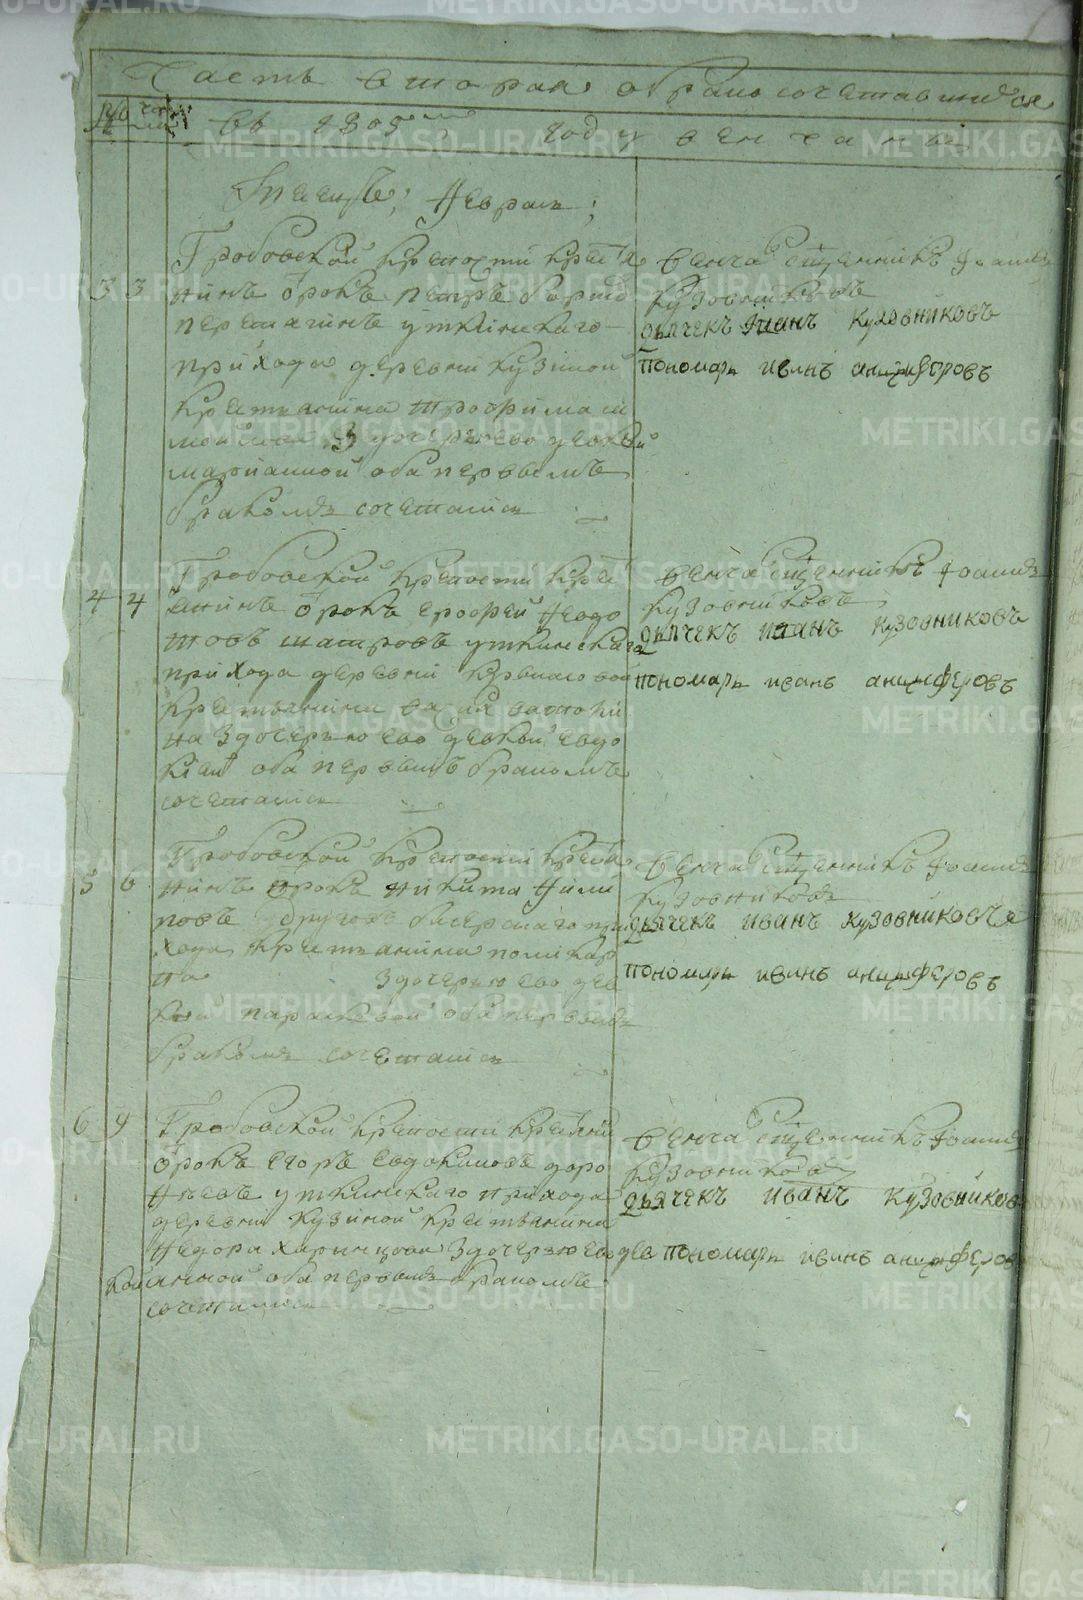 Часть вторая о бракосочетавшихся
№ числ
въ 1805мъ году венчаны
Месецъ; Февраль;
3 3
Гробовской крепости крестья
нинъ отрокъ петръ
перетягинъ уткинскаго
прихода деревни кузиной
крестьянина трофима
здочерью ево девкой
марианной оба первымъ
бракомъ сочетались
венча священникъ Иоаннъ
Кузовниковъ
дьячекъ Иванъ Кузовниковъ
пономарь иванъ анцыферовъ
4 4
Гробовской крепости крестья
янинъ отрокъ ерофей Федо
товъ шатровъ уткинскаго
прихода деревни
крестьянина
на здочерью ево девкой евдо
киеи оба первымъ бракомъ
сочетались
венча священникъ Иоаннъ
Кузовниковъ
дьячекъ Иванъ Кузовниковъ
пономарь иванъ анцыферовъ
5 6
Гробовской крепости крестья
нинъ отрокъ никита Фили
повъ другова бисерскаго при
хода крестьянина поликар
па здочерью ево дев
кой парасковой оба первымъ
бракомъ сочетались
венча священникъ Иоаннъ
Кузовниковъ
дьячекъ Иванъ Кузовниковъ
пономарь иванъ анцыферовъ
6 9
Гробовской крепости крестьяни
отрокъ егоръ евдокимовъ доро
феевъ уткинскаго прихода
деревни кузиной крестьянина
Федора здочерью ево дев
кой анной оба первымъ бракомъ
сочетались
венча священникъ Иоаннъ
Кузовниковъ
дьячекъ Иванъ Кузовников
пономарь иванъ анцыферов
METRIKI.GASO-URAL.RU